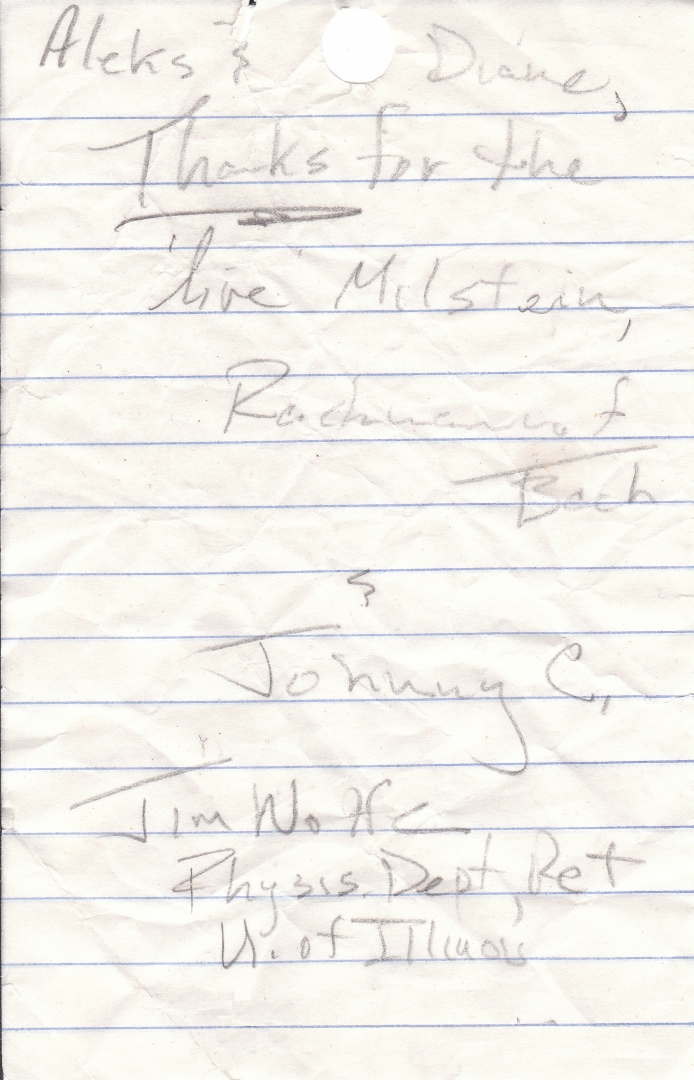 Aleks & Diane,
Thanks for the
'live' Milstein,
Rachmaninof
Bach
&
Johnny C,
Jim Wolfe
Physis. Dept, Ret
U. of Illinois